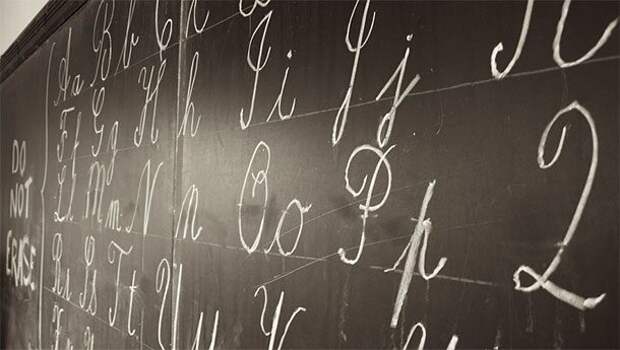 DO
NOT
ERASE
Aa Bb C c
Ff Gg H h I i J j K
Ll M m N n O o P p Q
Rr Ss Tt U u V